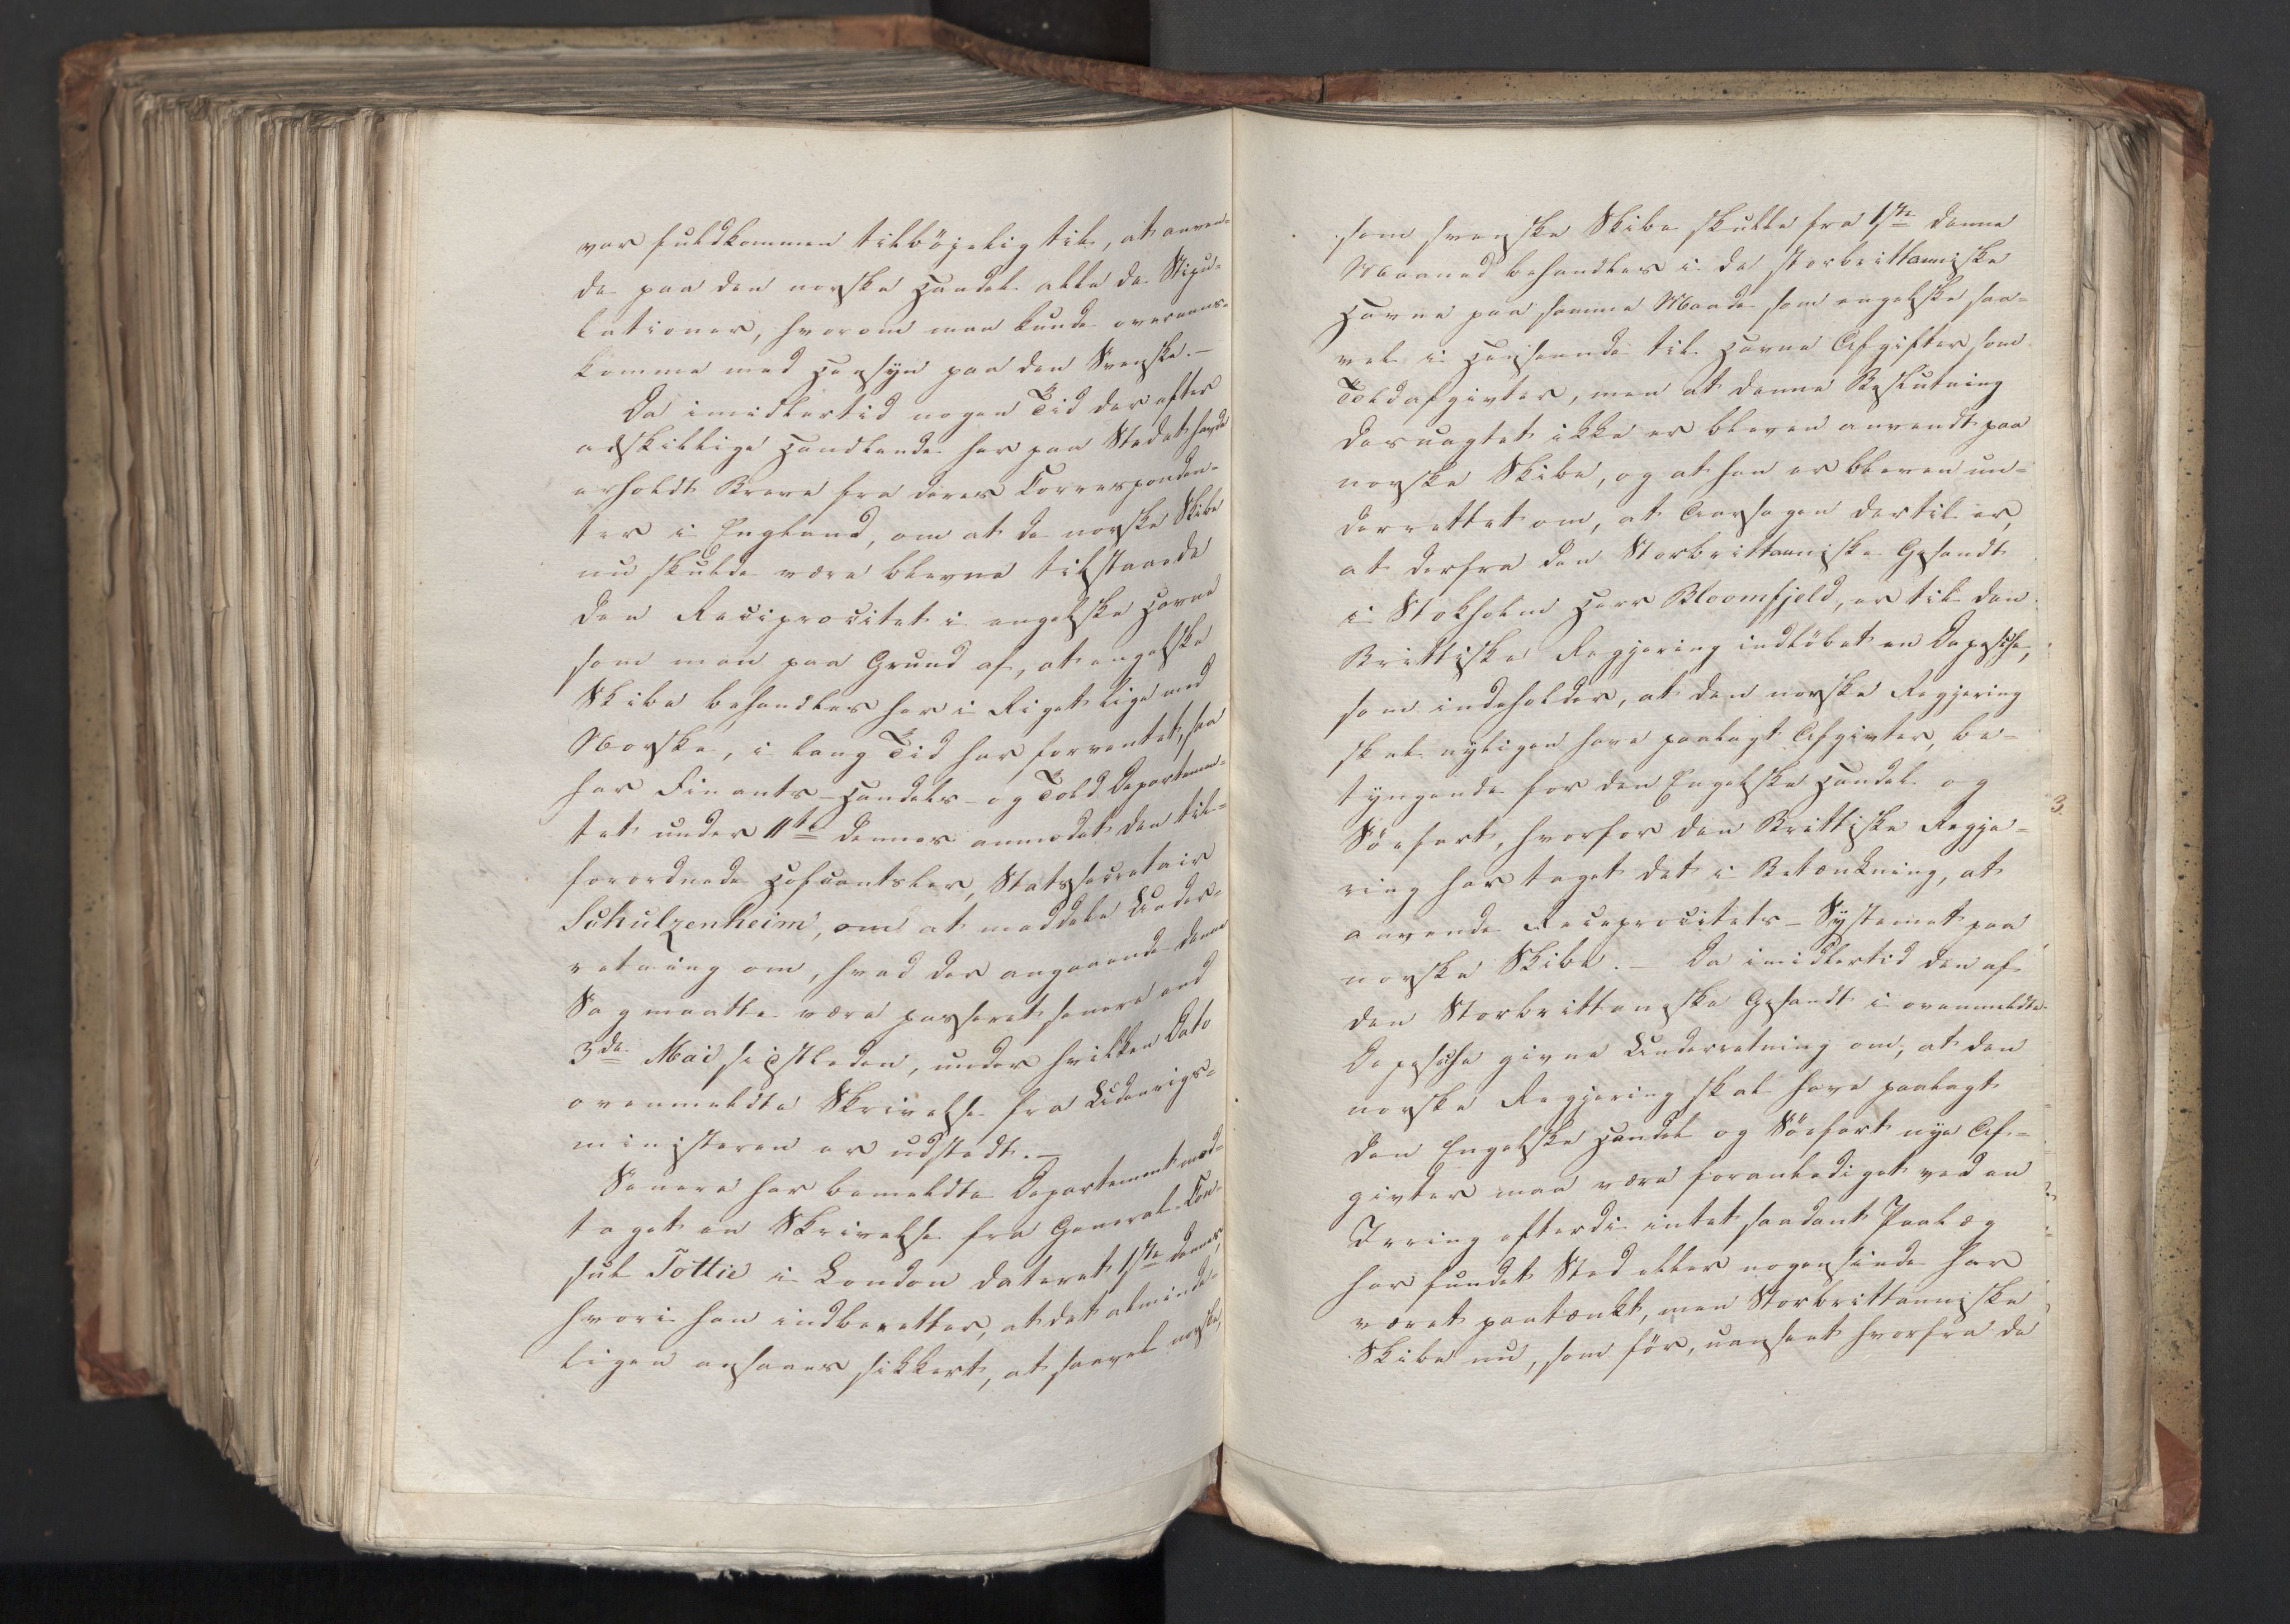 var fuldkommen tilböjelig til, at anven-
de paa den norske Handel alle de Stipu-
lationer, hvorom man kunde overeens-
komme med Hensyn paa den Svenske.-
Da imidlertid nogen Tid derefter
adskillige Handlende her paa Stedet havde
erholdt Breve fra deres Corresponden-
ter i England, om at de norske Skibe
nu skulde være blevne tilstaaede
den Reciprocitet i engelske Havne
som man paa Grund af, at engelske
Skibe behandles her i Riget lige med
Norske, i lang Tid har forventet, saa
har Finants-Handels- og Told Departemen-
tet under 11te dennes anmodet den til-
forordnede Hofcantsler, Statssecretair
Schulzenheim, om at meddele Under-
retning om, hvad der angaaende denne
Sag maatte være passeret senere end
3de Mai sidstleden, under hvilken Dato
ovenmeldte Skrivelse fra Udenrigs-
ministeren er udstedt.-
Senere har bemeldte Departement mod-
taget en Skrivelse fra General-Con-
sul Tottie i London dateret 1ste dennes,
hvori han indberetter, at det alminde-
ligen ansaaes sikkert, at saavel norske,
som svenske Skibe skulle fra 1ste denne
Maaned behandles i de storbrittanniske
Havne paa samme Maade som engelske saa-
vel i Henseende til Havne Afgifter som
Toldafgivter, men at denne Beslutning
desuagtet ikke er bleven anvendt paa
norske Skibe, og at han er bleven un-
derrettet om, at Aarsagen dertil er,
at derfra den Storbrittanniske Gesandt
i Stokholm Herr Bloomfjeld, er til den
Brittiske Regjering indlöbet en Depesche,
som indeholder, at den norske Regjering
skal nyligen have paalagt Afgivter, be-
tyngende for den Engelske Handel og
Söefart, hvorfor den Brittiske Regje-
ring har taget det i Betænkning, at
anvende Reciprocitets-Systemet paa
norske Skibe.- Da imidlertid den af
den Storbrittanske Gesandt i ovenmeldte
Depesche givne Underretning om, at den
norske Regjering skal have paalagt
den Engelske Handel og Söefart nye Af-
givter maa være foranlediget ved en
Irring efterdi intet saadant Paalæg
har fundet Sted eller nogensinde har
været paatænkt, men Storbrittanniske
Skibe nu, som för, uanseet hvorfra de
3